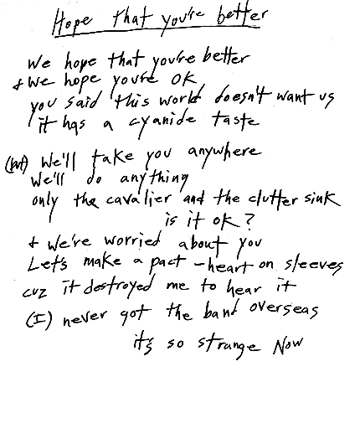 Hope that you're better
We hope that you're better
& we hope you're OK
you said "this world doesn't want us
it has a cyanide taste
(but) We'll take you anywhere
We'll do anything
only the cavalier and the clutter sink
is it ok?
& we're worried about you
Let's make a pact - heart on sleeves
cuz it destroyed me to hear it
(I) never got the band overseas
it's so strange Now